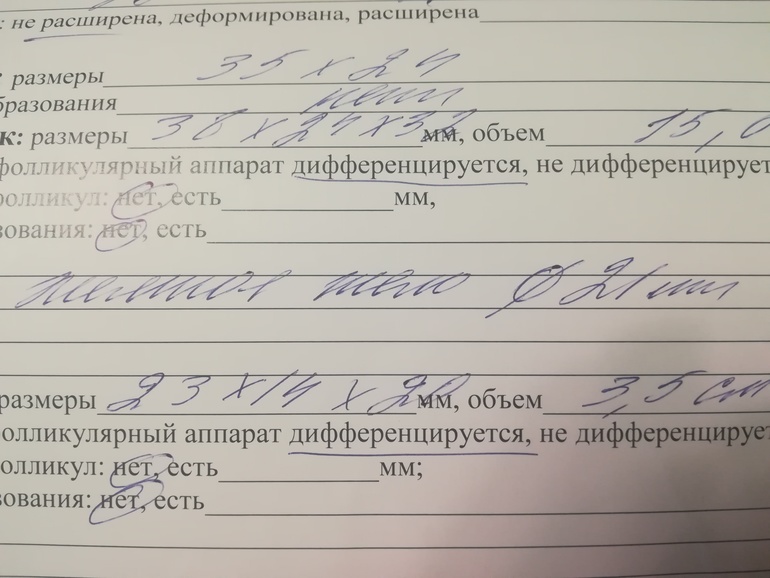 : не расширена, деформирована, расширена
: размеры 35 х 24
бразования нет
к: размеры 38 х 24 х 32 мм, объем 15,0
фолликулярный аппарат дифференцируется, не дифференцирует
фолликул: нет, есть мм,
зования: нет, есть
желтое тело ∅ 21 мм
размеры 23 х 14 х 20 мм, объем 3,5 см
олликулярный аппарат дифференцируется, не дифференцирует
олликул: нет, есть мм;
зования: нет, есть